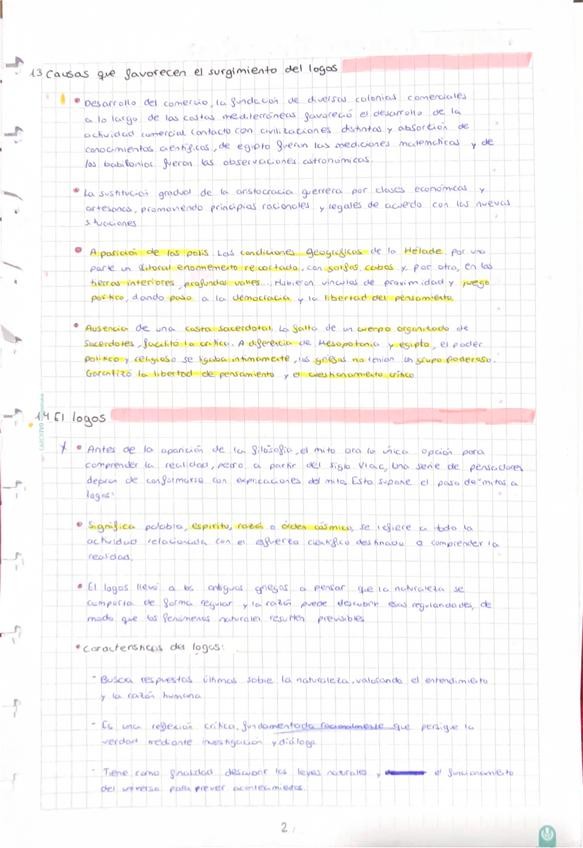 1.3 Causas que favorecen el surgimiento del logos
• Desarrollo del comercio, la fundación de diversas colonias comerciales
a lo largo de las costas mediterráneas favoreció el desarrollo de la
actividad comercial contacto con civilizaciones distintas y absorción de
conocimientos científicos, de egipto fueron las mediciones matemáticas y de
los babilonios fueron las observaciones astronomicas.
• La sustitución gradual de la aristocracia guerrera por clases económicas y
artesanas, promoviendo principios racionales y legales de acuerdo con las nuevas
situaciones.
• Aparición de las polis. Las condiciones geográficas de la Hélade por una
parte un litoral enormemente recortado, con golfos, cabos y por otra, en las
tierras interiores, profundos valles... Hubieron vínculos de proximidad y juego
político, dando paso a la democracia y la libertad del pensamiento.
• Ausencia de una casta sacerdotal. La falta de un cuerpo organizado de
sacerdotes, facilitó la crítica. A diferencia de Mesopotamia y egipto, el poder
político y religioso se ligaba intimamente, los griegos no tenían un grupo poderoso.
Garantizó la libertad de pensamiento y el cuestionamiento crítico
1.4 El logos
• Antes de la aparición de la filosofía, el mito era la única opción para
comprender la realidad, pero a partir del siglo VI a.C, una serie de pensadores
dejaron de conformarse con explicaciones del mito. Esto supone el paso de "mitos a
logos".
• Significa palabra, espíritu, razón o orden cósmico, se refiere a toda la
actividad relacionada con el esfuerzo científico destinado a comprender la
realidad.
• El logos llevó a los antiguos griegos a pensar que la naturaleza se
comporta de forma regular y la razón puede descubrir esas regularidades, de
modo que los fenómenos naturales resulten previsibles
• Características del logos:
- Busca respuestas últimas sobre la naturaleza, valorando el entendimiento
y la razón humana
- Es una reflexión crítica, fundamentada racionalmente que persigue la
verdad mediante investigación y diálogo
- Tiene como finalidad descubrir las leyes naturales y el funcionamiento
del universo para prever acontecimientos.
2